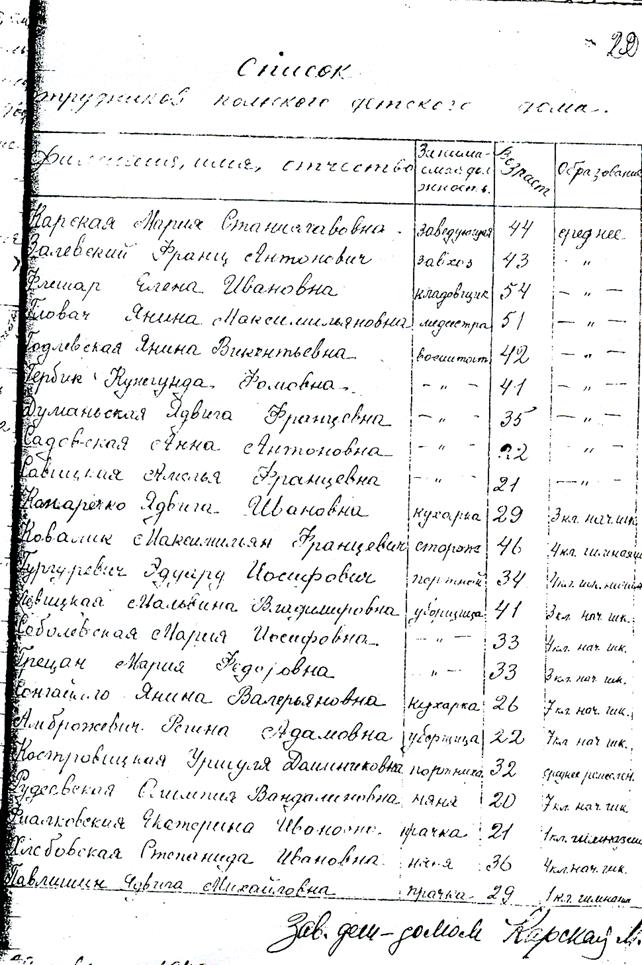 22
Список
польского детского дома.
Фамилия, имя, отчество Занима-емая дол-жность. Возраст Образование
Карская Мария Станиславовна. заведующая 44 среднее
Залевский Франц Антонович завхоз 43 "
Флешар Елена Ивановна кладовщик 54 — " —
Янина Максимильяновна медсестра 51 — " —
Янина Викентьевна воспитат 42 — " —
Гербик Кунегунда Фомовна — " — 41 — " —
Думаньская Ядвига Францевна — " — 35 — " —
Садовская Анна Антоновна — " — 22 "
Савицкая Амелья Францевна — " — 21 — " —
Ядвига Ивановна кухарка 29 3 кл. нач. шк.
Ковалик Максимильян Францевич сторож 46 4 кл. гимназии
Эдуард Иосифович портной 34
Мальвина Владимировна уборщица 41 3 кл. нач. шк.
Соболевская Мария Иосифовна — " — 33 4 кл. нач. шк.
Грецан Мария Федоровна " — 33 3 кл. нач. шк.
Янина Валерьяновна кухарка 26 7 кл. нач. шк.
Амброжевич Регина Адамовна уборщица 22 7 кл. нач. шк.
Костровицкая Уршуля Доминиковна портниха 32 среднее
Олимпия Вандалиновна няня 20 7 кл. нач. шк.
Екатерина прачка 21 1 кл. гимназии
Хлебовская Степанида Ивановна няня 36 4 кл. нач. шк.
Павлишин Ядвига Михайловна прачка 29 1 кл. гимназ
Зав. дет-домом Карская М.